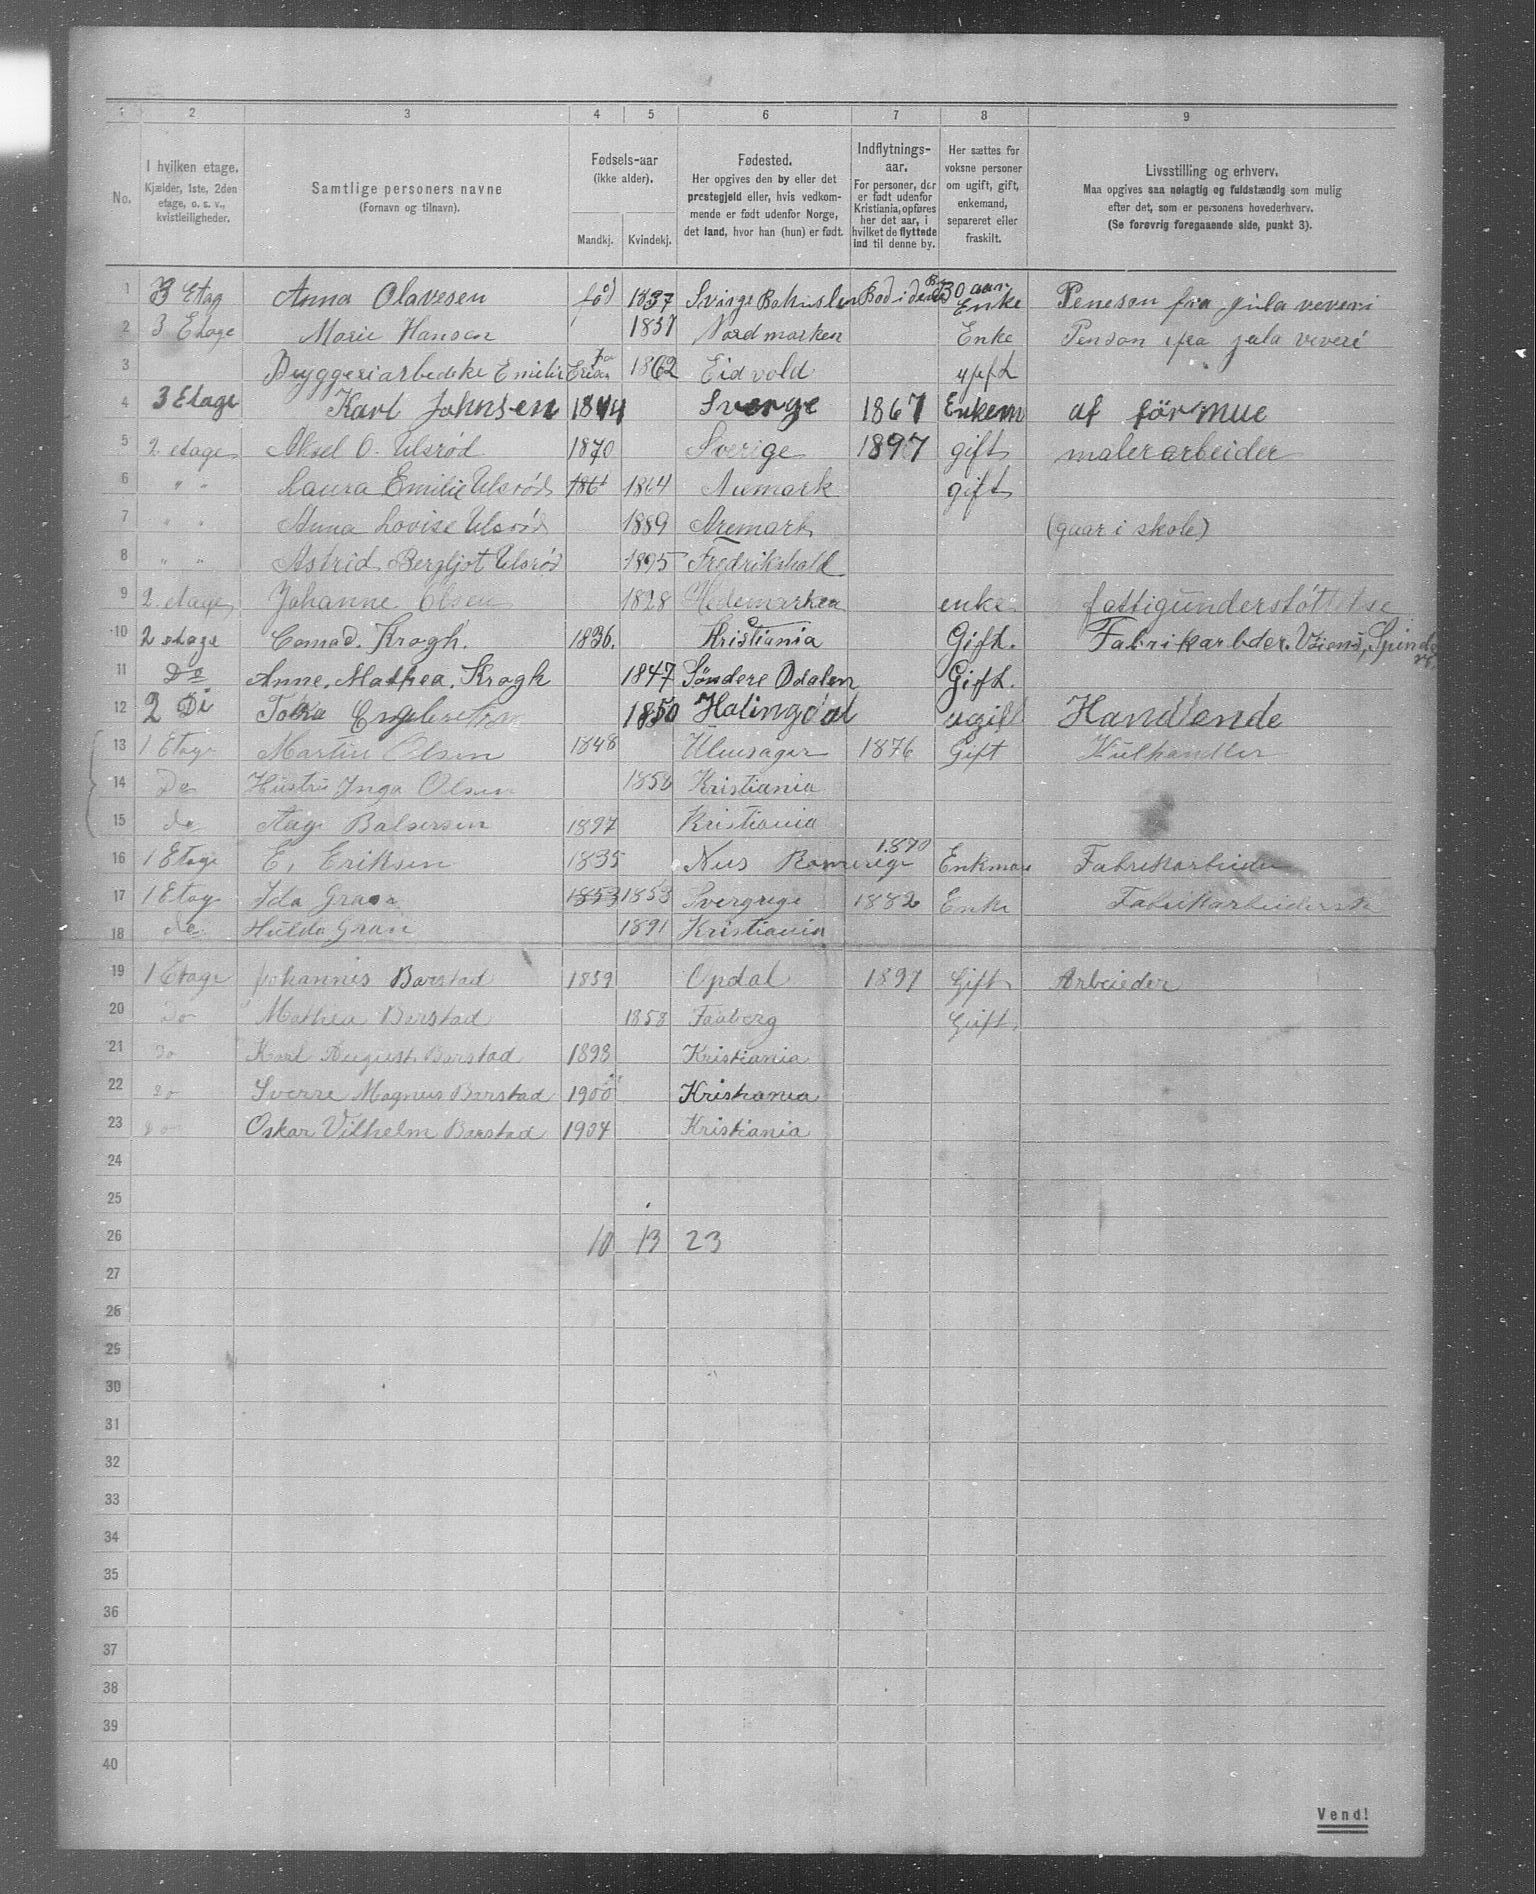 1 2 3 4 5 6 7 8 9
No.
I hvilken etage.
Kjælder, 1ste, 2den
etage, o. s. v.,
kvistleiligheder.
Samtlige personers navne
(Fornavn og tilnavn).
Fødsels-aar
(ikke alder).
Mandkj. Kvindekj.
Fødested.
Her opgives den by eller det
prestegjeld eller, hvis vedkom-
mende er født udenfor Norge,
det land, hvor han (hun) er født.
Indflytnings-
aar.
For personer, der
er født udenfor
Kristiania, opføres
her det aar, i
hvilket de flyttede
ind til denne by.
Her sættes for
voksne personer
om ugift, gift,
enkemand,
separeret eller
fraskilt.
Livsstilling og erhverv.
Maa opgives saa nøiagtig og fuldstændig som mulig
efter det, som er personens hovederhverv.
(Se forøvrig foregaaende side, punkt 3).
1 3 Etag Anna Olavesen fød 1837 30 aar Enke Peneson fra jula veveri
2 3 Etage Marie Hansen 1837 Nordmarken Enke Penson ifra jula veveri
3 Bryggeriarbedske Emilie 1862 Eidvold
4 3 Etage Karl Johnsen 1844 Sverge 1867 Enkem af förmue
5 2 etage Aksel O. Ulsrød 1870 Sverige 1897 gift malerarbeider
6 " " Laura Emilie Ulsrød 1864 Aremark gift
7 " " Anna Lovise Ulsrød 1889 Aremark (gaar i skole)
8 " " Astrid Bergljot Ulsrød 1895 Fredrikshald
9 2 etage Johanne Olsen 1828 Hedemarken enke fattigunderstøttelse
10 2 etage Conrad. Krogh. 1836. Kristiania Gift. Fabrikarbder.
11 Do Anne. Mathea. Krogh 1847 Søndere Odalen Gift.
12 2 Di 1850 Halingdal ugift Handlende
13 1 Etage Martin Olsen 1848 Ulensager 1876 Gift Kulhandler
14 Do Hustru Inga Olsen 1858 Kristiania
15 do Aage Balsersen 1897 Kristiania
16 1 Etage E. Eriksen 1835 Nes Romerige 1870 Enkman Fabrikarbeider
17 1 Etage Ida Graan 1853 1853 Svergrige 1882 Enke Fabrikarbeiderske
18 do Hulda Gran 1891 Kristiania
19 1 Etage Johannis Barstad 1859 Opdal 1897 Gift Arbeieder
20 Do Mathea Barstad 1858 Faaberg Gift.
21 Do Karl August Barstad 1893 Kristiania
22 Do Sverre Magnus Barstad 1900 Kristiania
23 Do Oskar Vilhelm Barstad 1904 Kristiania
24
25
26 10 13 23
27
28
29
30
31
32
33
34
35
36
37
38
39
40
Vend!